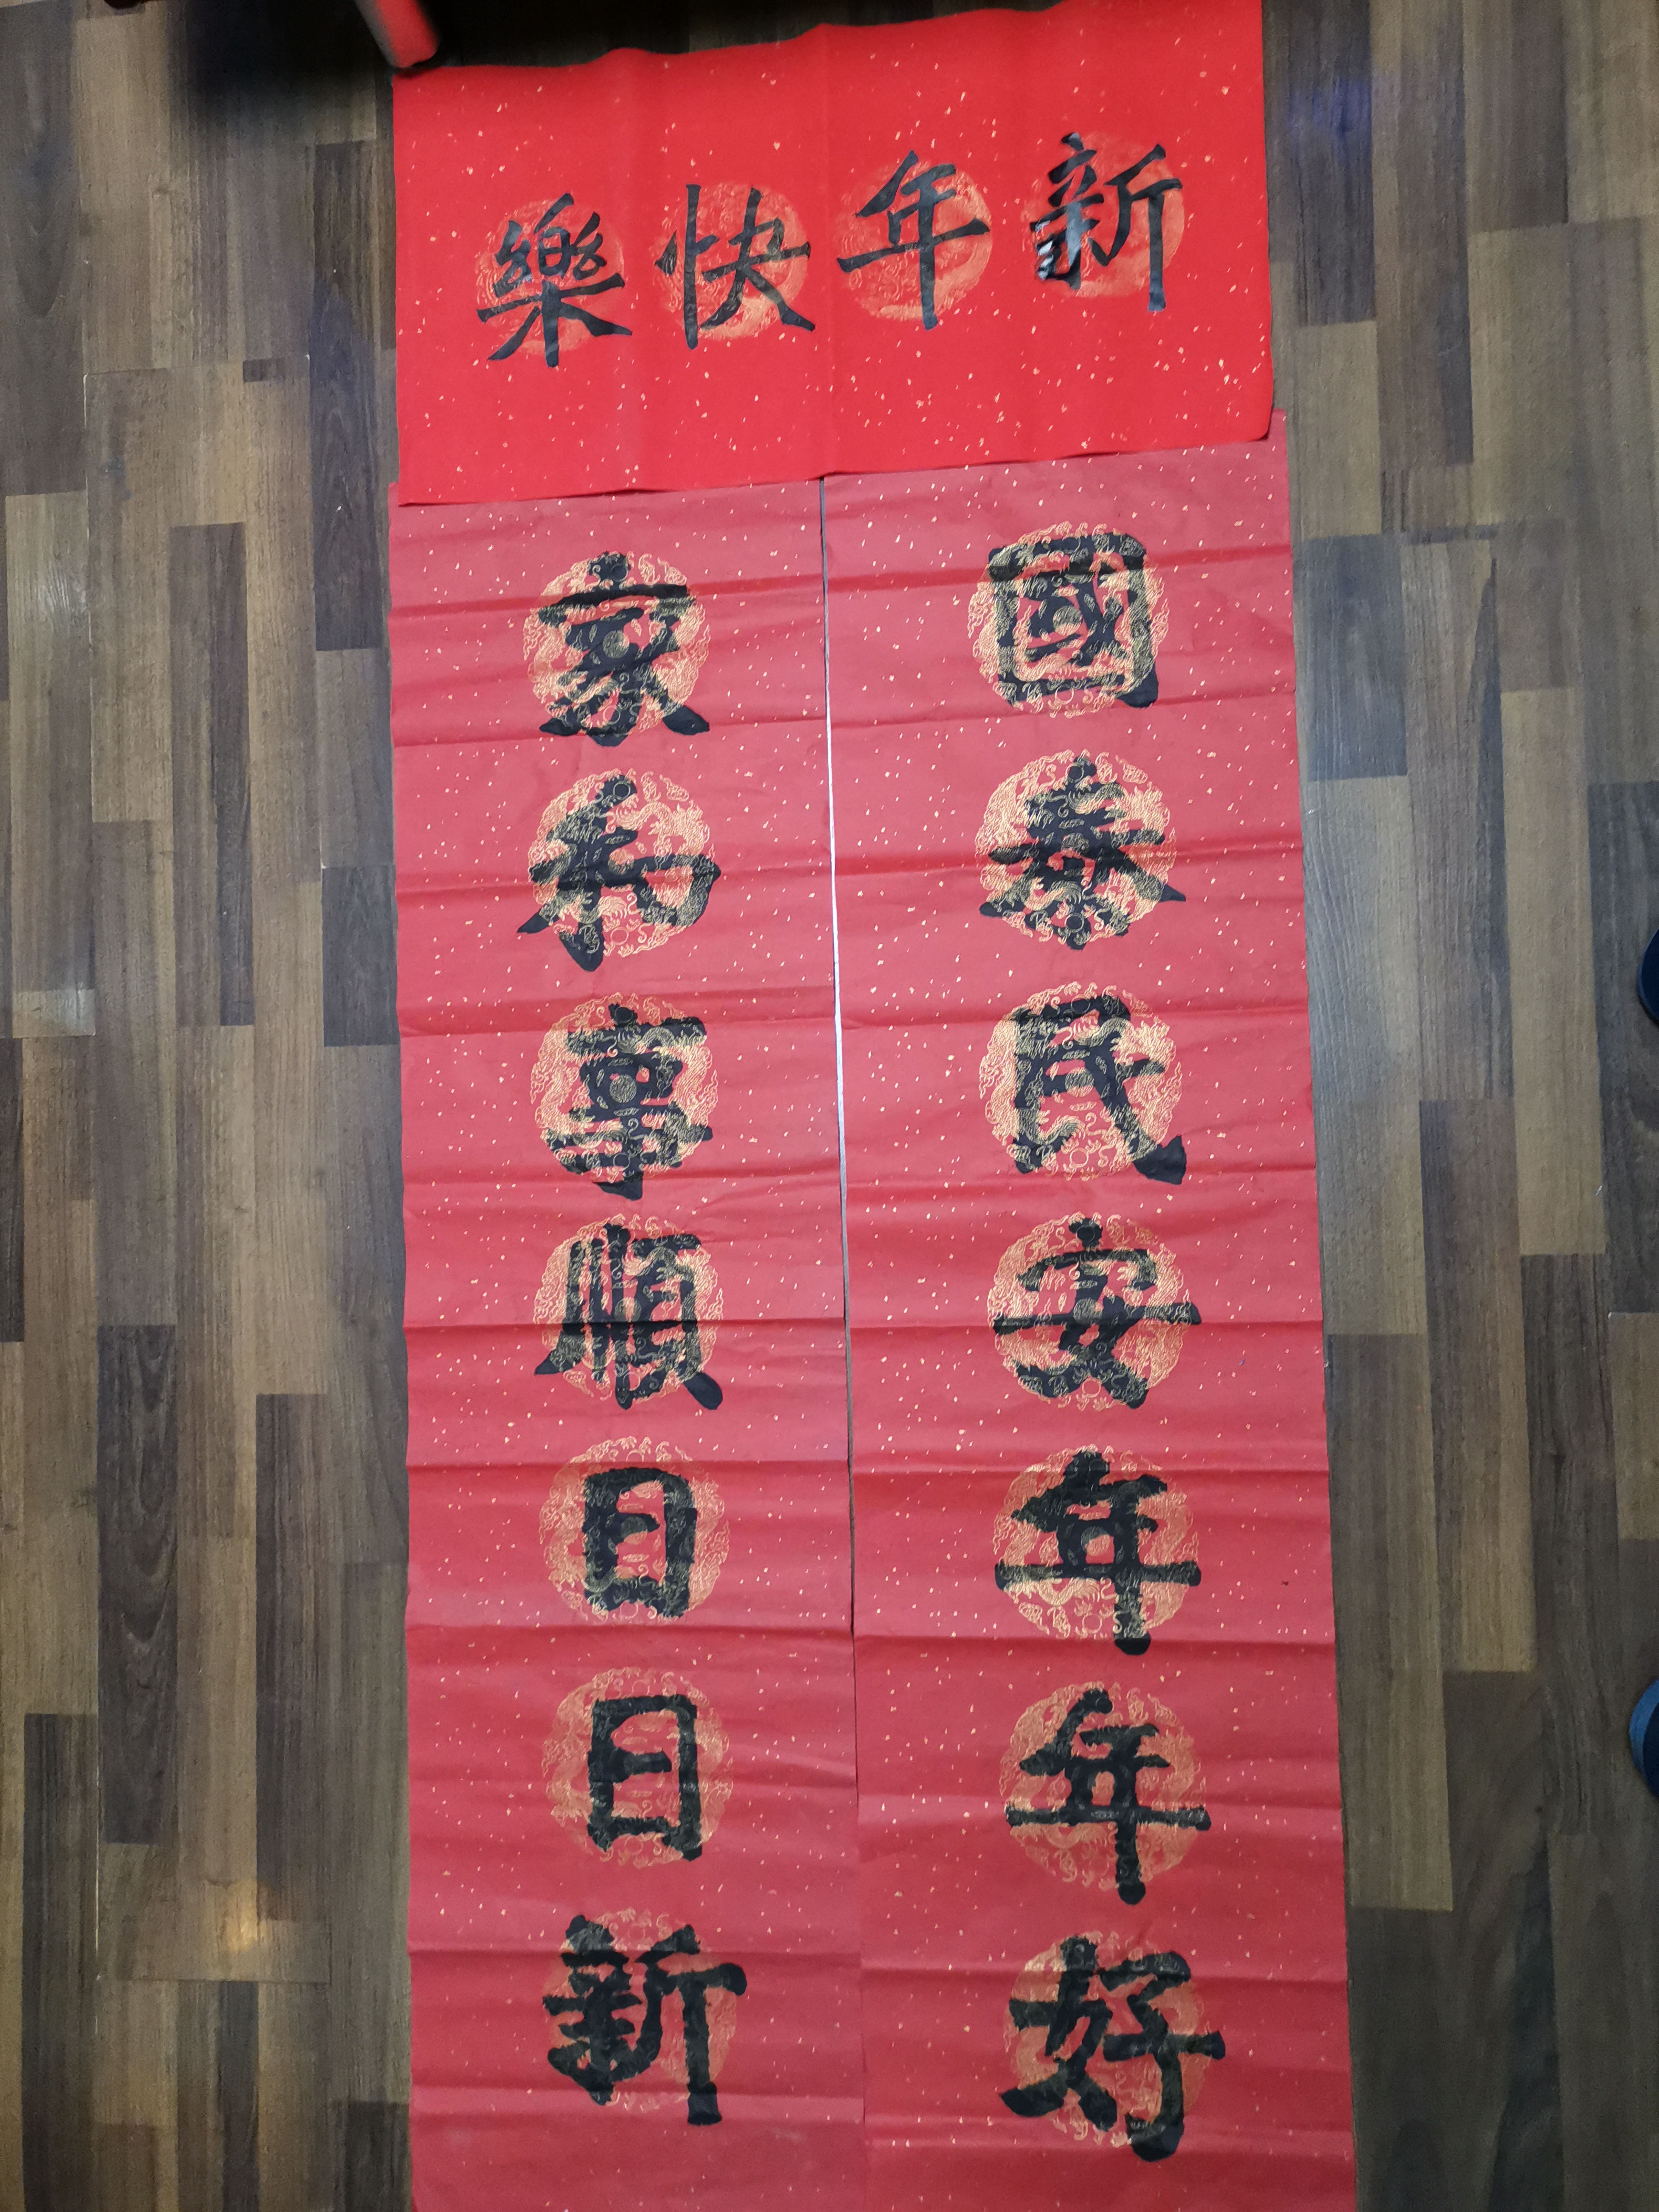 新年快樂
國泰民安年年好
家和事順日日新